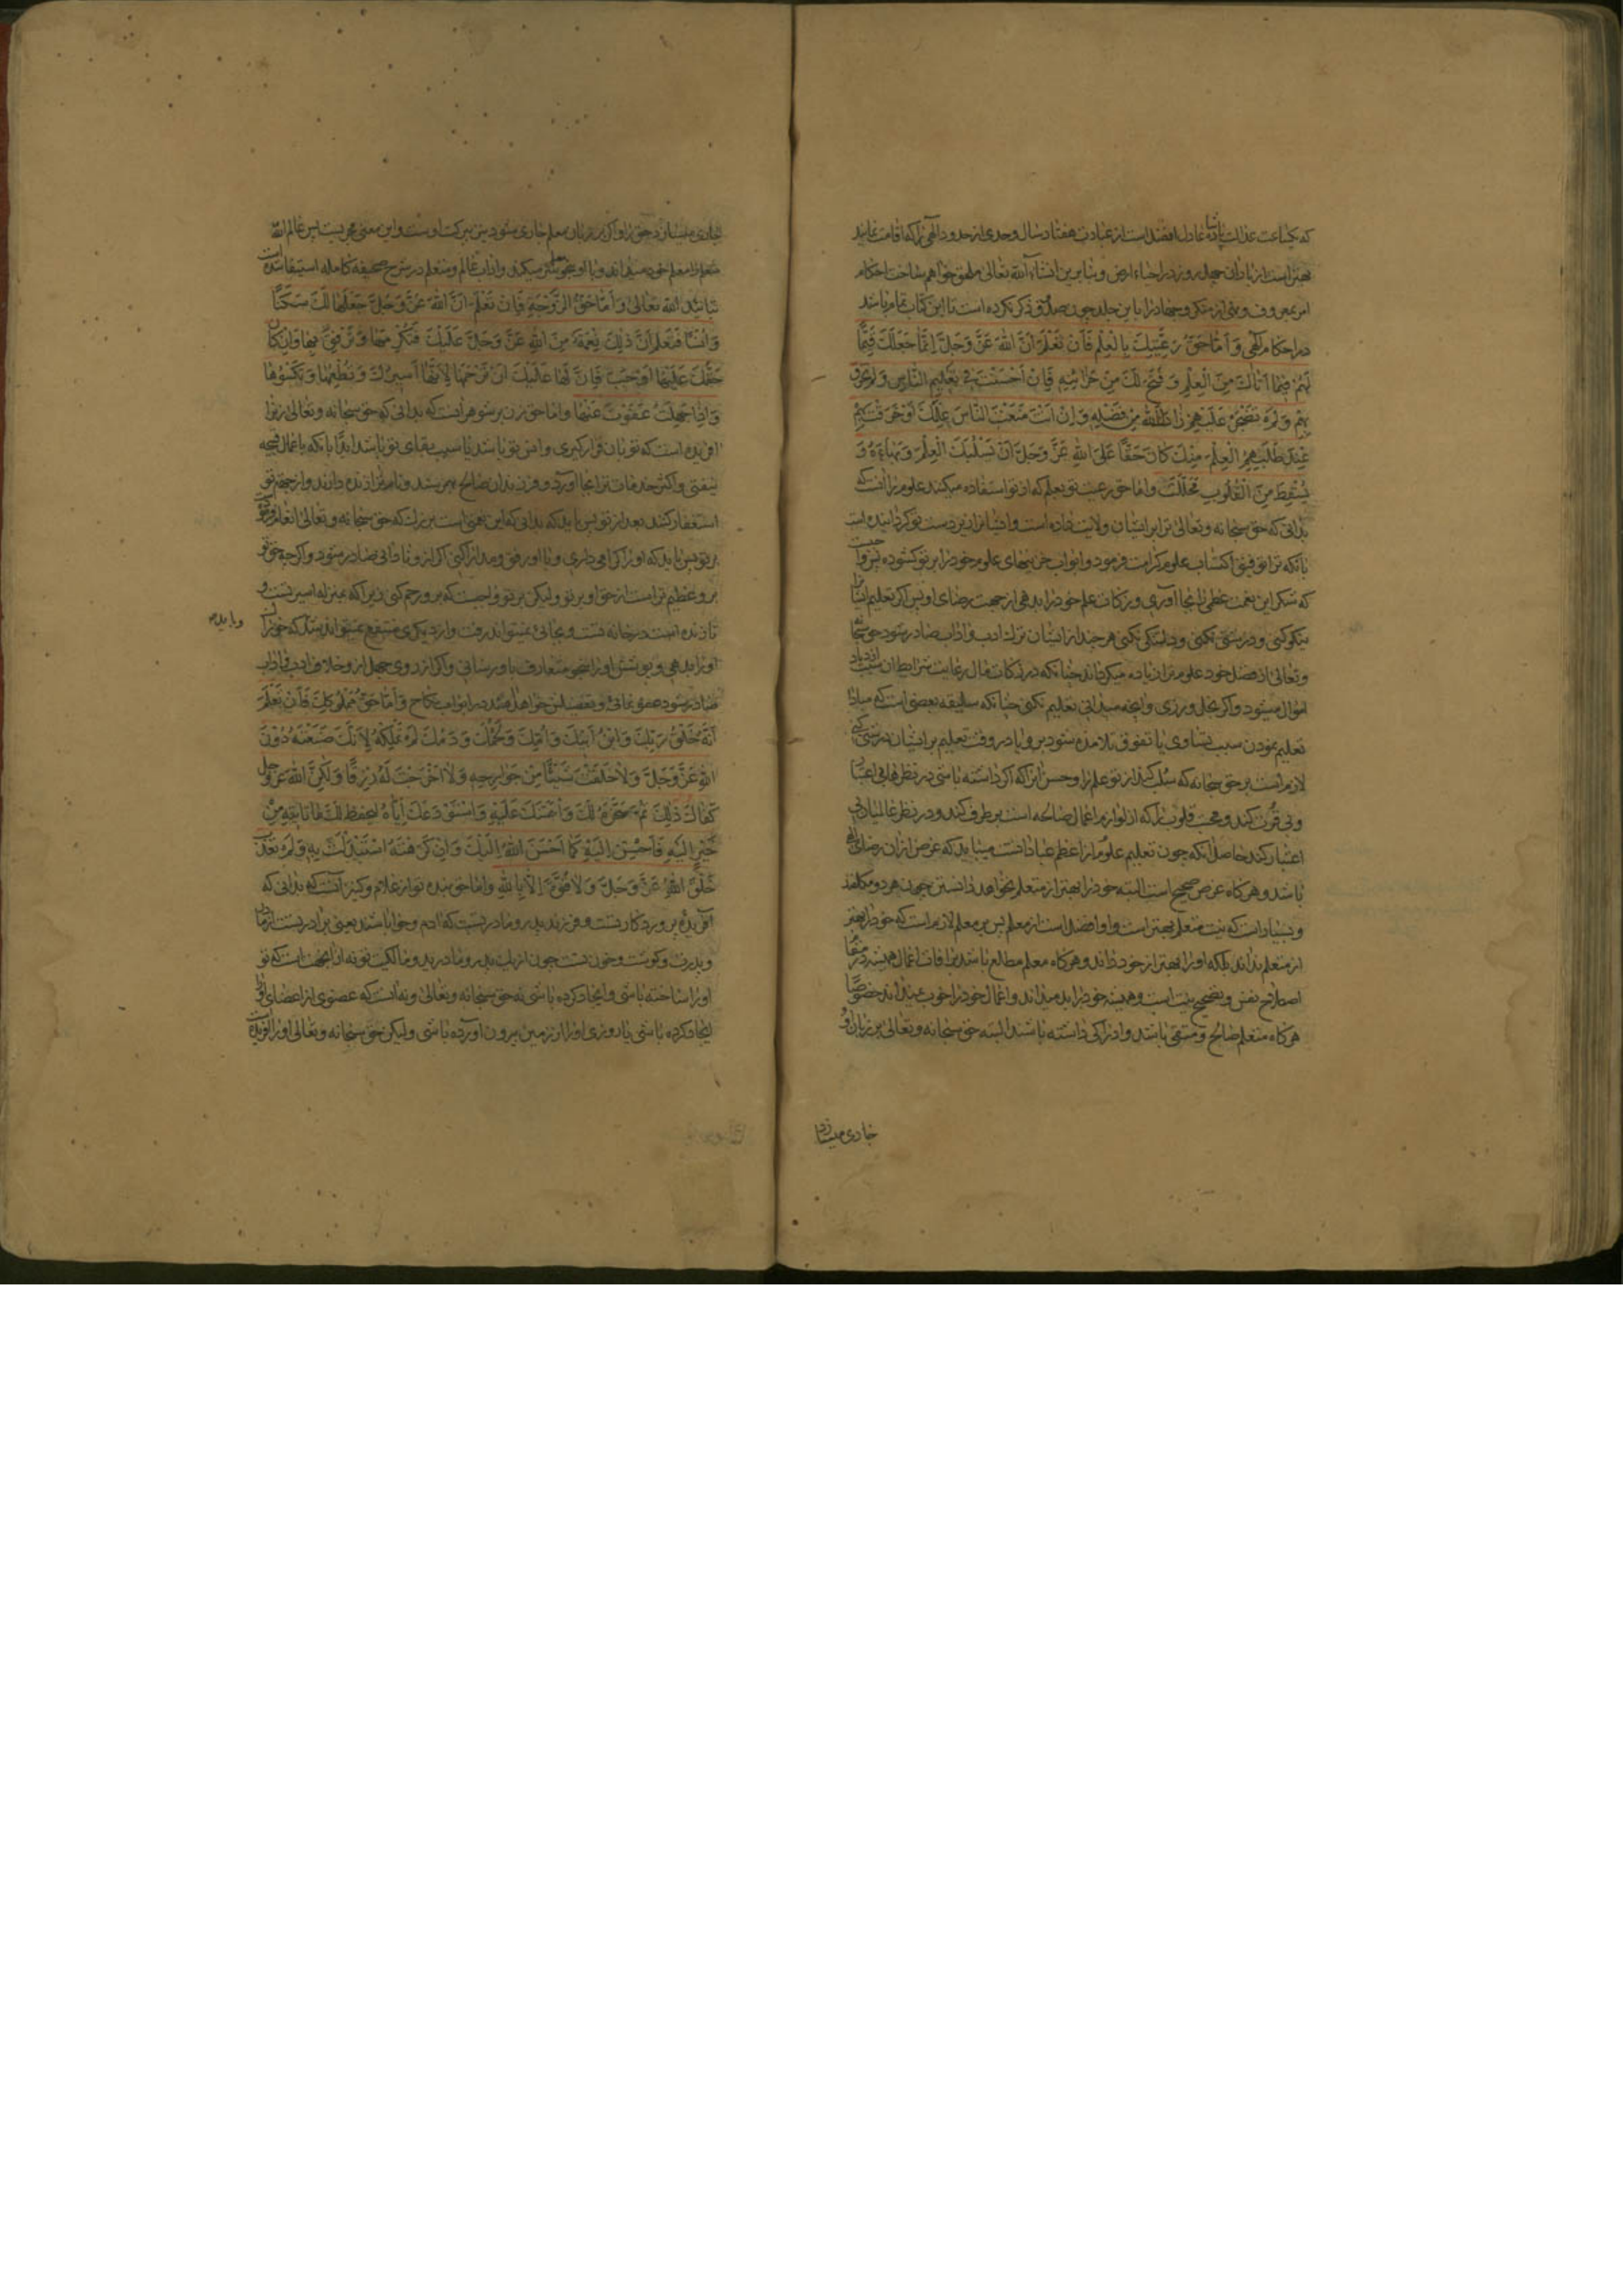 که یکساعت عدالت پادشاه عادل افضل است از عبادت هفتاد سال و حدی از حدود الهی را که اقامت نمایند
بهتر است از باران چهل روز در احیاء ارض و بنابرین انشاء الله تعالی ملحق خواهم ساخت احکام
امر بمعروف و نهی از منکر و جهاد را باین جلد چون صدوق ذکر نکرده است تا این کتاب تمام باشد
در احکام الهی وَ اَمّا حَقُّ رَعِیَّتِكَ بِالْعِلْمِ فَاَنْ تَعْلَمَ اَنَّ اللهَ عَزَّ وَجَلَّ اِنَّمَا جَعَلَكَ قَیِّمًا
لَهُمْ فِیمَا اٰتَاكَ مِنَ الْعِلْمِ وَ فَتَحَ لَكَ مِنْ خَزَائِنِهِ فَاِنْ اَحْسَنْتَ فِی تَعْلِیمِ النَّاسِ وَ لَمْ تَخْرَقْ
بِهِمْ وَ لَمْ تَضْجَرْ عَلَیْهِمْ زَادَكَ اللهُ مِنْ فَضْلِهِ وَ اِنْ اَنْتَ مَنَعْتَ النَّاسَ عِلْمَكَ اَوْ خَرَقْتَ بِهِمْ
عِنْدَ طَلَبِهِمُ الْعِلْمَ مِنْكَ كَانَ حَقًّا عَلَی اللهِ عَزَّ وَ جَلَّ اَنْ یَسْلُبَكَ الْعِلْمَ وَ بَهَاءَهُ وَ
یُسْقِطَ مِنَ الْقُلُوبِ مَحَلَّكَ و اما حق رعیت تو بعلم که از تو استفاده میکنند علوم را آنست که
بدانی که حق سبحانه و تعالی ترا بر ایشان ولایت داده است و ایشانرا زیر دست تو گردانیده است
بآنکه ترا توفیق اکتساب علوم کرامت فرمود و ابواب خزینهای علوم خود را بر تو گشوده پس واجبست
که شکر این نعمت عظمی را بجا آوری و زکات علم خود را بدهی از جهت رضای او پس اگر تعلیم ایشانرا
نیکو کنی و درشتی نکنی و دلتنگی نکنی هر چند از ایشان ترك ادب و اداب صادر شود حق سبحانه
و تعالی از فضل خود علوم ترا زیاده میگرداند چنانکه در زکات مال رعایت شرایط آن سبب ازدیاد
اموال میشود و اگر بخل ورزی و آنچه میدانی تعلیم نکنی چنانکه سلیقه بعضی است که مبادا
تعلیم نمودن سبب تساوی یا تفوق تلامذه شود بر و یا در وقت تعلیم بر ایشان درشتی کنی
لازم است بر حق سبحانه که سلب کند از تو علم را و حسن آنرا که اگر داشته باشی در نظرها بی اعتبار
و بی قدر کند و محبت قلوب را که از لوازم اعمال صالحه است بر طرف کند و در نظر عالمیان بی
اعتبار کند حاصل آنکه چون تعلیم علوم از اعظم عبادات است میباید که غرض از آن رضای الهی
باشد و هر گاه غرض صحیح است البته خود را بهتر از متعلم نخواهد دانستن چون هر دو مکلفند
و بسیار است که نیت متعلم بهتر است و او افضل است از معلم پس بر معلم لازم است که خود را بهتر
از متعلم نداند بلکه او را بهتر از خود داند و هر گاه معلم مطالع باشد بر آفات اعمال همیشه در مقام
اصلاح نفس و تصحیح نیت است و همیشه خود را بد میداند و اعمال خود را خوب نمیداند خصوصا
هر گاه متعلم صالح و متقی باشد و ادراکی داشته باشد البته حق سبحانه و تعالی بر زبان او
جاری میسازد
جاری میسازد حق را و اگر بر زبان معلم جاری شود نیز ببرکت اوست و این معنی مجربیست پس عالم الله
متعلم را معلم خود میداند و با او بنحو معلم سلوك میکند و اداب عالم و متعلم در شرح صحیفه کامله استیفا شده است
بتایید الله تعالی وَ اَمّا حَقُّ الزَّوْجَةِ فَاَنْ تَعْلَمَ اَنَّ اللهَ عَزَّ وَ جَلَّ جَعَلَهَا لَكَ سَكَنًا
وَ اُنْسًا فَتَعْلَمَ اَنَّ ذٰلِكَ نِعْمَةٌ مِنَ اللهِ عَزَّ وَ جَلَّ عَلَیْكَ فَتُكْرِمَهَا وَ تَرْفُقَ بِهَا وَ اِنْ كَانَ
حَقُّكَ عَلَیْهَا اَوْجَبَ فَاِنَّ لَهَا عَلَیْكَ اَنْ تَرْحَمَهَا لِاَنَّهَا اَسِیرُكَ وَ تُطْعِمَهَا وَ تَكْسُوَهَا
وَ اِذَا جَهِلَتْ عَفَوْتَ عَنْهَا و اما حق زن بر شوهر آنست که بدانی که حق سبحانه و تعالی او را
آفریده است که تو بآن قرار گیری و انس تو باشد یا سبب بقای تو باشد ابدا بآنکه باعمال قبیحه
نیفتی و اکثر خدمات ترا بجا آورد و فرزندان صالح بهم رسند و نام ترا زنده دارند و از جهة تو
استغفار کنند بعد از تو پس باید که بدانی که این نعمتی است بزرك که حق سبحانه و تعالی انعام کرده
بر تو پس باید که او را گرامی داری و با او رفق و مدارا کنی اگر از و نادانی صادر شود و اگر چه حق تو
بر و عظیم تر است از حق او بر تو و لیکن بر تو واجبست که برو رحم کنی زیرا که بمنزله اسیر تست و
تا زنده است در خانه تست و بجائی نمیتواند رفت و از دیگری منتفع نمیتواند شد که خوراك
و باید که
او را بدهی و پوشش او را بنحو متعارف باو رسانی و اگر از روی جهل از و خلاف ادب و اداب
صادر شود عفو نمائی و تفصیل این خواهد آمد در ابواب نکاح وَ اَمّا حَقُّ مَمْلُوكِكَ فَاَنْ تَعْلَمَ
اَنَّهُ خَلْقُ رَبِّكَ وَ ابْنُ اَبِیكَ وَ اُمِّكَ وَ لَحْمُكَ وَ دَمُكَ لَمْ تَمْلِكْهُ لِاَنَّكَ صَنَعْتَهُ دُونَ
اللهِ عَزَّ وَ جَلَّ وَ لَا خَلَقْتَ شَیْئًا مِنْ جَوَارِحِهِ وَ لَا اَخْرَجْتَ لَهُ رِزْقًا وَ لٰكِنَّ اللهَ عَزَّ وَ جَلَّ
كَفَاكَ ذٰلِكَ ثُمَّ سَخَّرَهُ لَكَ وَ ائْتَمَنَكَ عَلَیْهِ وَ اسْتَوْدَعَكَ اِیَّاهُ لِیَحْفَظَ لَكَ مَا تَأْتِیهِ مِنْ
خَیْرٍ اِلَیْهِ فَاَحْسِنْ اِلَیْهِ كَمَا اَحْسَنَ اللهُ اِلَیْكَ وَ اِنْ كَرِهْتَهُ اسْتَبْدَلْتَ بِهِ وَ لَمْ تُعَذِّبْ
خَلْقَ اللهِ عَزَّ وَ جَلَّ وَ لَا قُوَّةَ اِلَّا بِاللهِ و اما حق بنده تو از غلام و کنیز آنست که بدانی که
آفریده پروردگار تست و فرزند پدر و مادر تست که آدم و حوا باشند یعنی برادر تست از مادر
و پدرت و گوشت و خون تست چون از یك پدر و مادرید و مالکیت تو نه از آنجهت است که تو
او را ساخته باشی و ایجاد کرده باشی نه حق سبحانه و تعالی و نه آنست که عضوی از اعضای او را
ایجاد کرده باشی یا روزی او را از زمین بیرون آورده باشی و لیکن حق سبحانه و تعالی او را آفریده